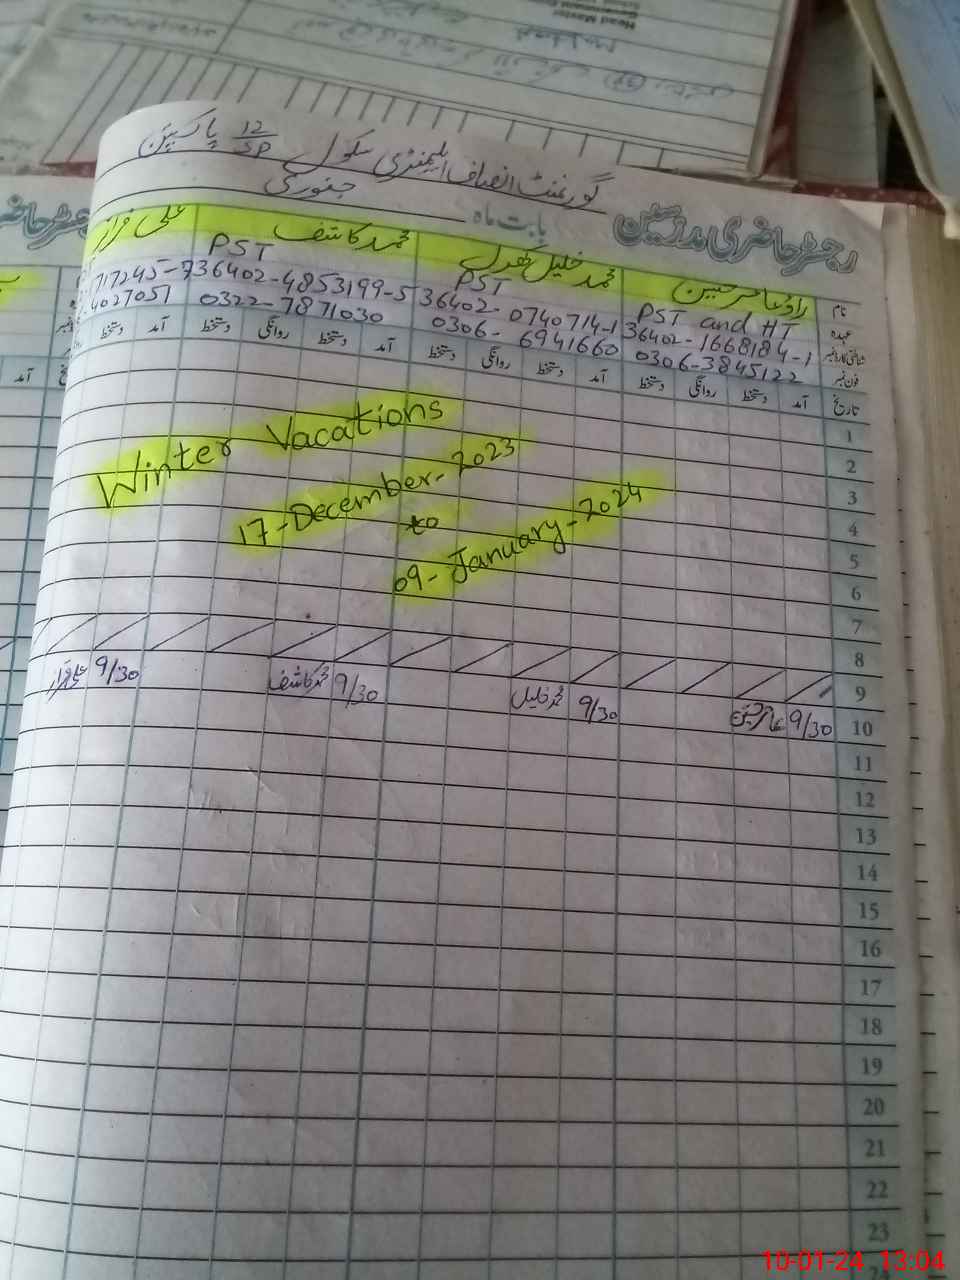 Head Master
گورنمنٹ انصاف ایلیمنٹری سکول 12/SP پاکپتن
رجسٹر حاضری مدرسین
بابت ماہ جنوری
نام محمد خلیل کھرل محمد کاشف علی فراز
عہدہ PST and HT PST PST
شناختی کارڈ نمبر 36402-1668184-1 36402-0740714-1 36402-4853199-5 717245-7
فون نمبر 0306-3845122 0306-6941660 0322-7871030 4027051
تاریخ آمد دستخط روانگی دستخط آمد دستخط روانگی دستخط آمد دستخط روانگی دستخط آمد دستخط
1
2
3
4
5
6
7
8
9
Winter Vacations
17-December-2023
to
09-January-2024
10 9/30 9/30 محمد خلیل 9/30 محمد کاشف 9/30 علی فراز
11
12
13
14
15
16
17
18
19
20
21
22
23
10-01-24 13:04